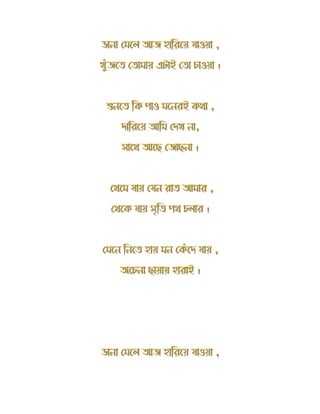 ডানা মেলে আজ হারিয়ে যাওয়া ,
খুঁজতে তোমায় এটাই তো চাওয়া ।
শুনতে কি পাও মনেরই কথা ,
দারিয়ে আমি দেখ না,
সাথে আছে জোছনা ।
থেমে যায় যেন রাত আমার ,
থেকে যায় সৃতি পথ চলার ।
মেনে নিতে হায় মন কেঁদে যায় ,
অচেনা ছায়ায় হারাই ।
ডানা মেলে আজ হারিয়ে যাওয়া ,